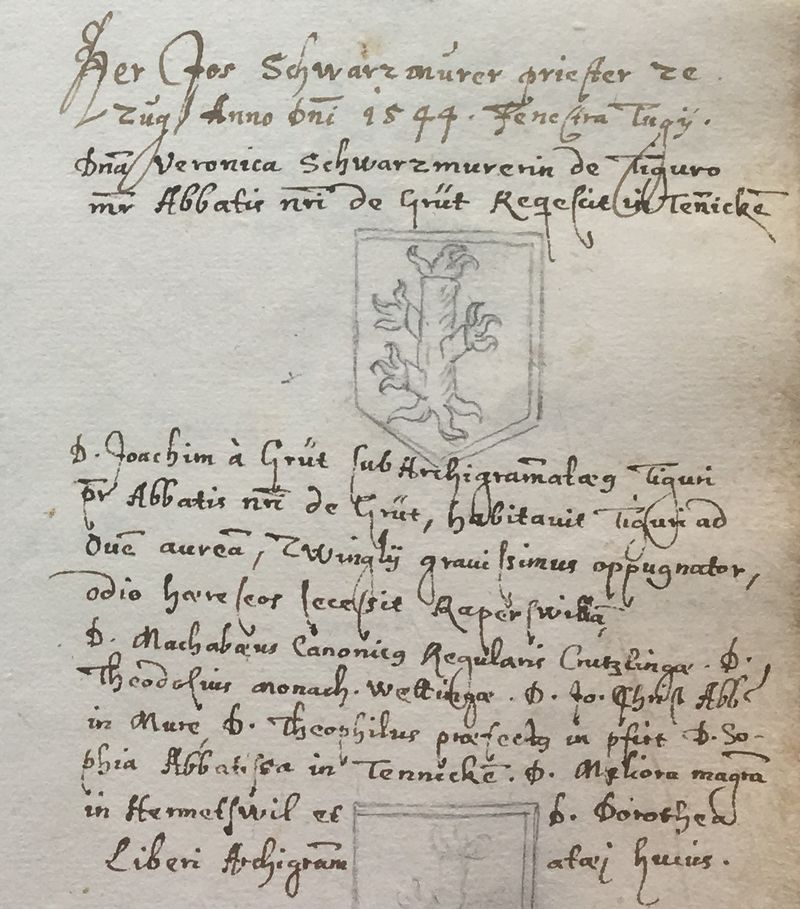 Her Jos Schwarzmürer priester ze
Zug Anno Dni 1544. Fenestra Tugij.
Dna Veronica Schwarzmurerin de Tiguro
mr Abbatis nri de Grüt Reqescit in Tennickē
D. Joachim à Grüt subArchigramataeg Tiguri
pr Abbatis nri de Grüt, habitavit Tiguri ad
Ovē aureā, Zwinglij gravissimus oppugnator,
odio haereseos secessit Raperswillā
D. Machabaeus Canonicg Regularis Crutzlingae. D.
Theodosius monach. Wettingae. D. Jo. Christ Abb
in Mure, D. Theophilus praefectg in pfirt D. So-
phia Abbatissa in Tennickē. D. Meliora magrā
in Hermetswil et D. Dorothea
Liberi Archigrāmataei huius.